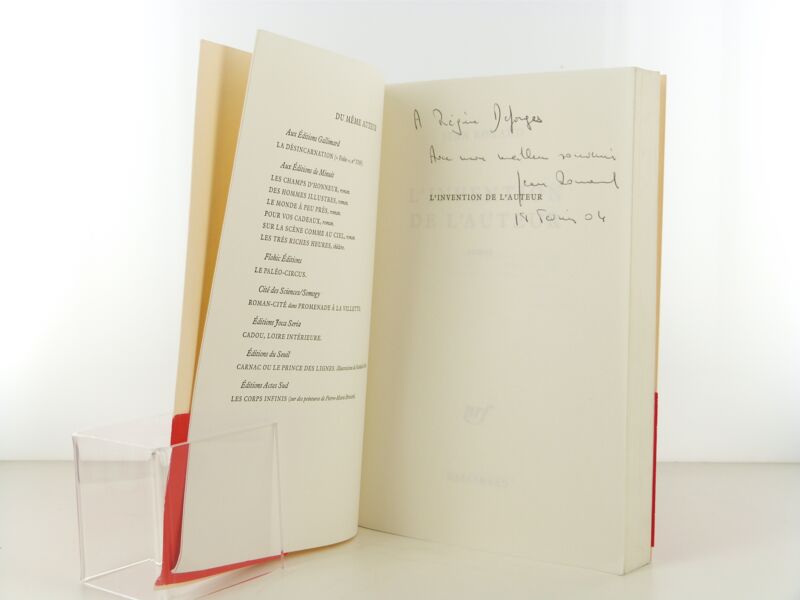 DU MÊME AUTEUR
Aux Éditions Gallimard
LA DÉSINCARNATION (« Folio », n° 3769).
Aux Éditions de Minuit
LES CHAMPS D'HONNEUR, roman.
DES HOMMES ILLUSTRES, roman.
LE MONDE À PEU PRÈS, roman.
POUR VOS CADEAUX, roman.
SUR LA SCÈNE COMME AU CIEL, roman.
LES TRÈS RICHES HEURES, théâtre.
Flohic Éditions
LE PALÉO-CIRCUS.
Cité des Sciences/Somogy
ROMAN-CITÉ dans PROMENADE À LA VILLETTE.
Éditions Joca Seria
CADOU, LOIRE INTÉRIEURE.
Éditions du Seuil
CARNAC OU LE PRINCE DES LIGNES. Illustrations de
Éditions Actes Sud
LES CORPS INFINIS (sur des peintures de Pierre-Marie
A Régine Deforges
Avec mon meilleur souvenir
Jean Rouaud
L'INVENTION DE L'AUTEUR
février 04
L'INVENTION
DE L'AUTEUR
nrf
GALLIMARD